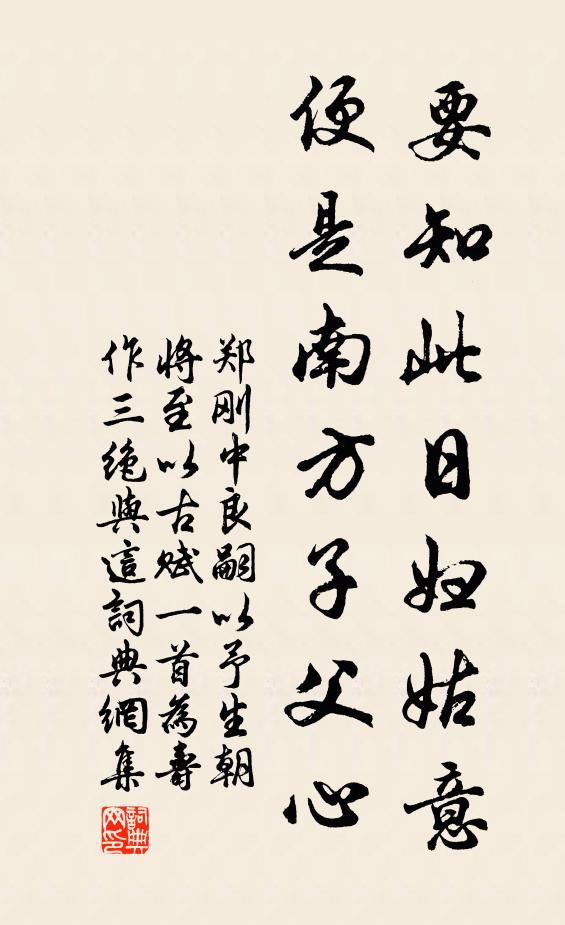 要知此日妇姑意
便是南方子父心
郑刚中良嗣以予生朝
将至以古赋一首為壽
作三绝與這詞典網集
詞典
网印